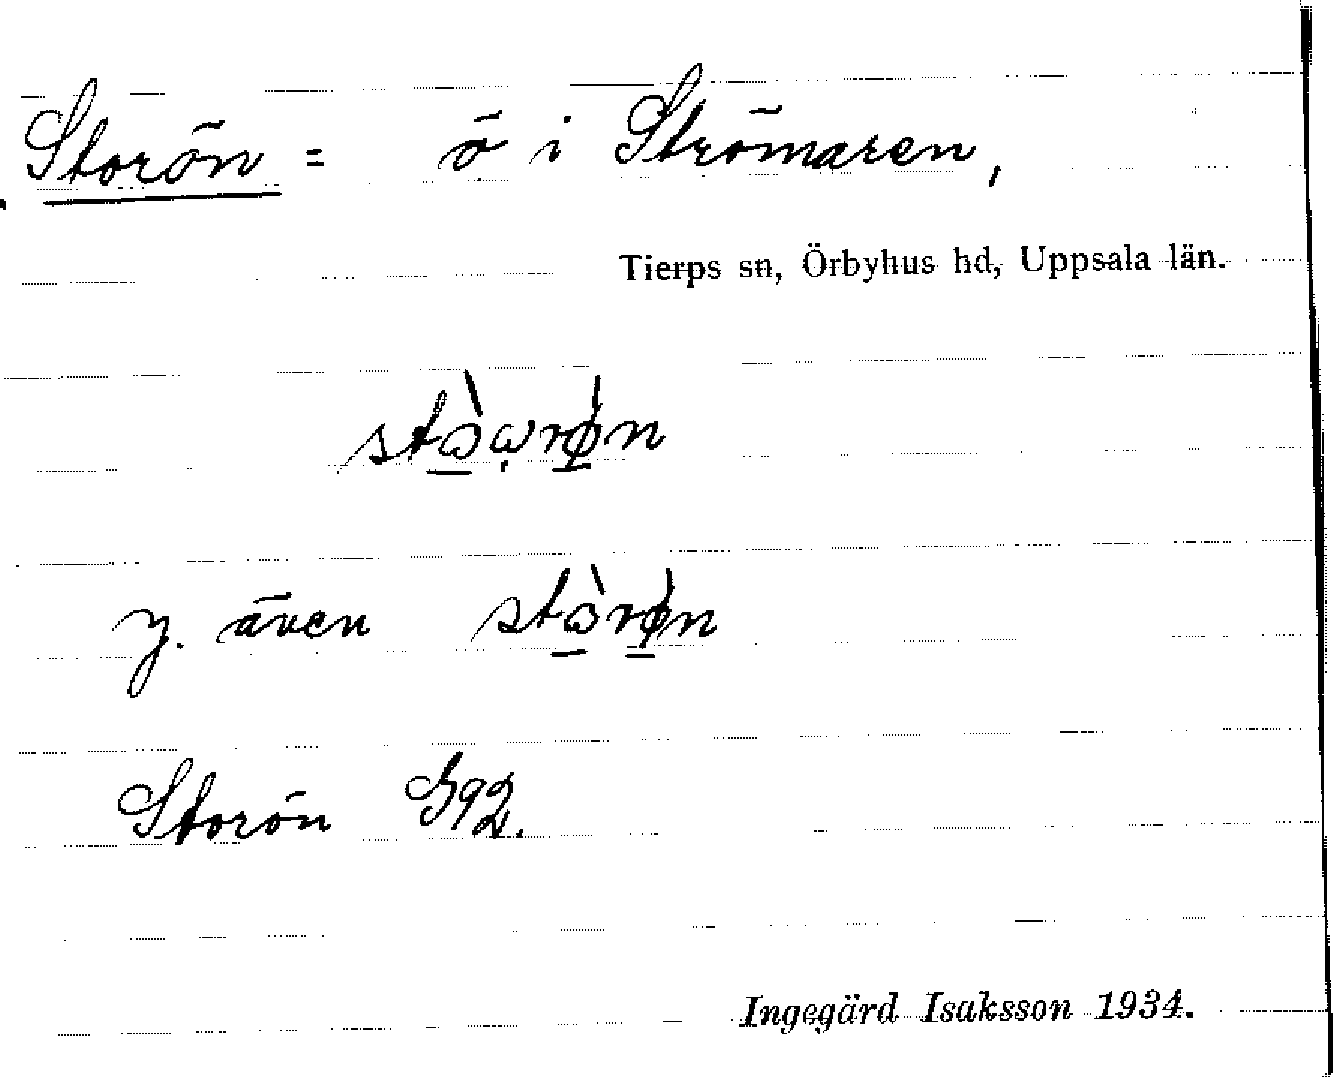 Storön = ö i Strömaren,
Tierps sn, Örbyhus hd, Uppsala län.
y. även
Storön G92.
Ingegärd Isaksson 1934.